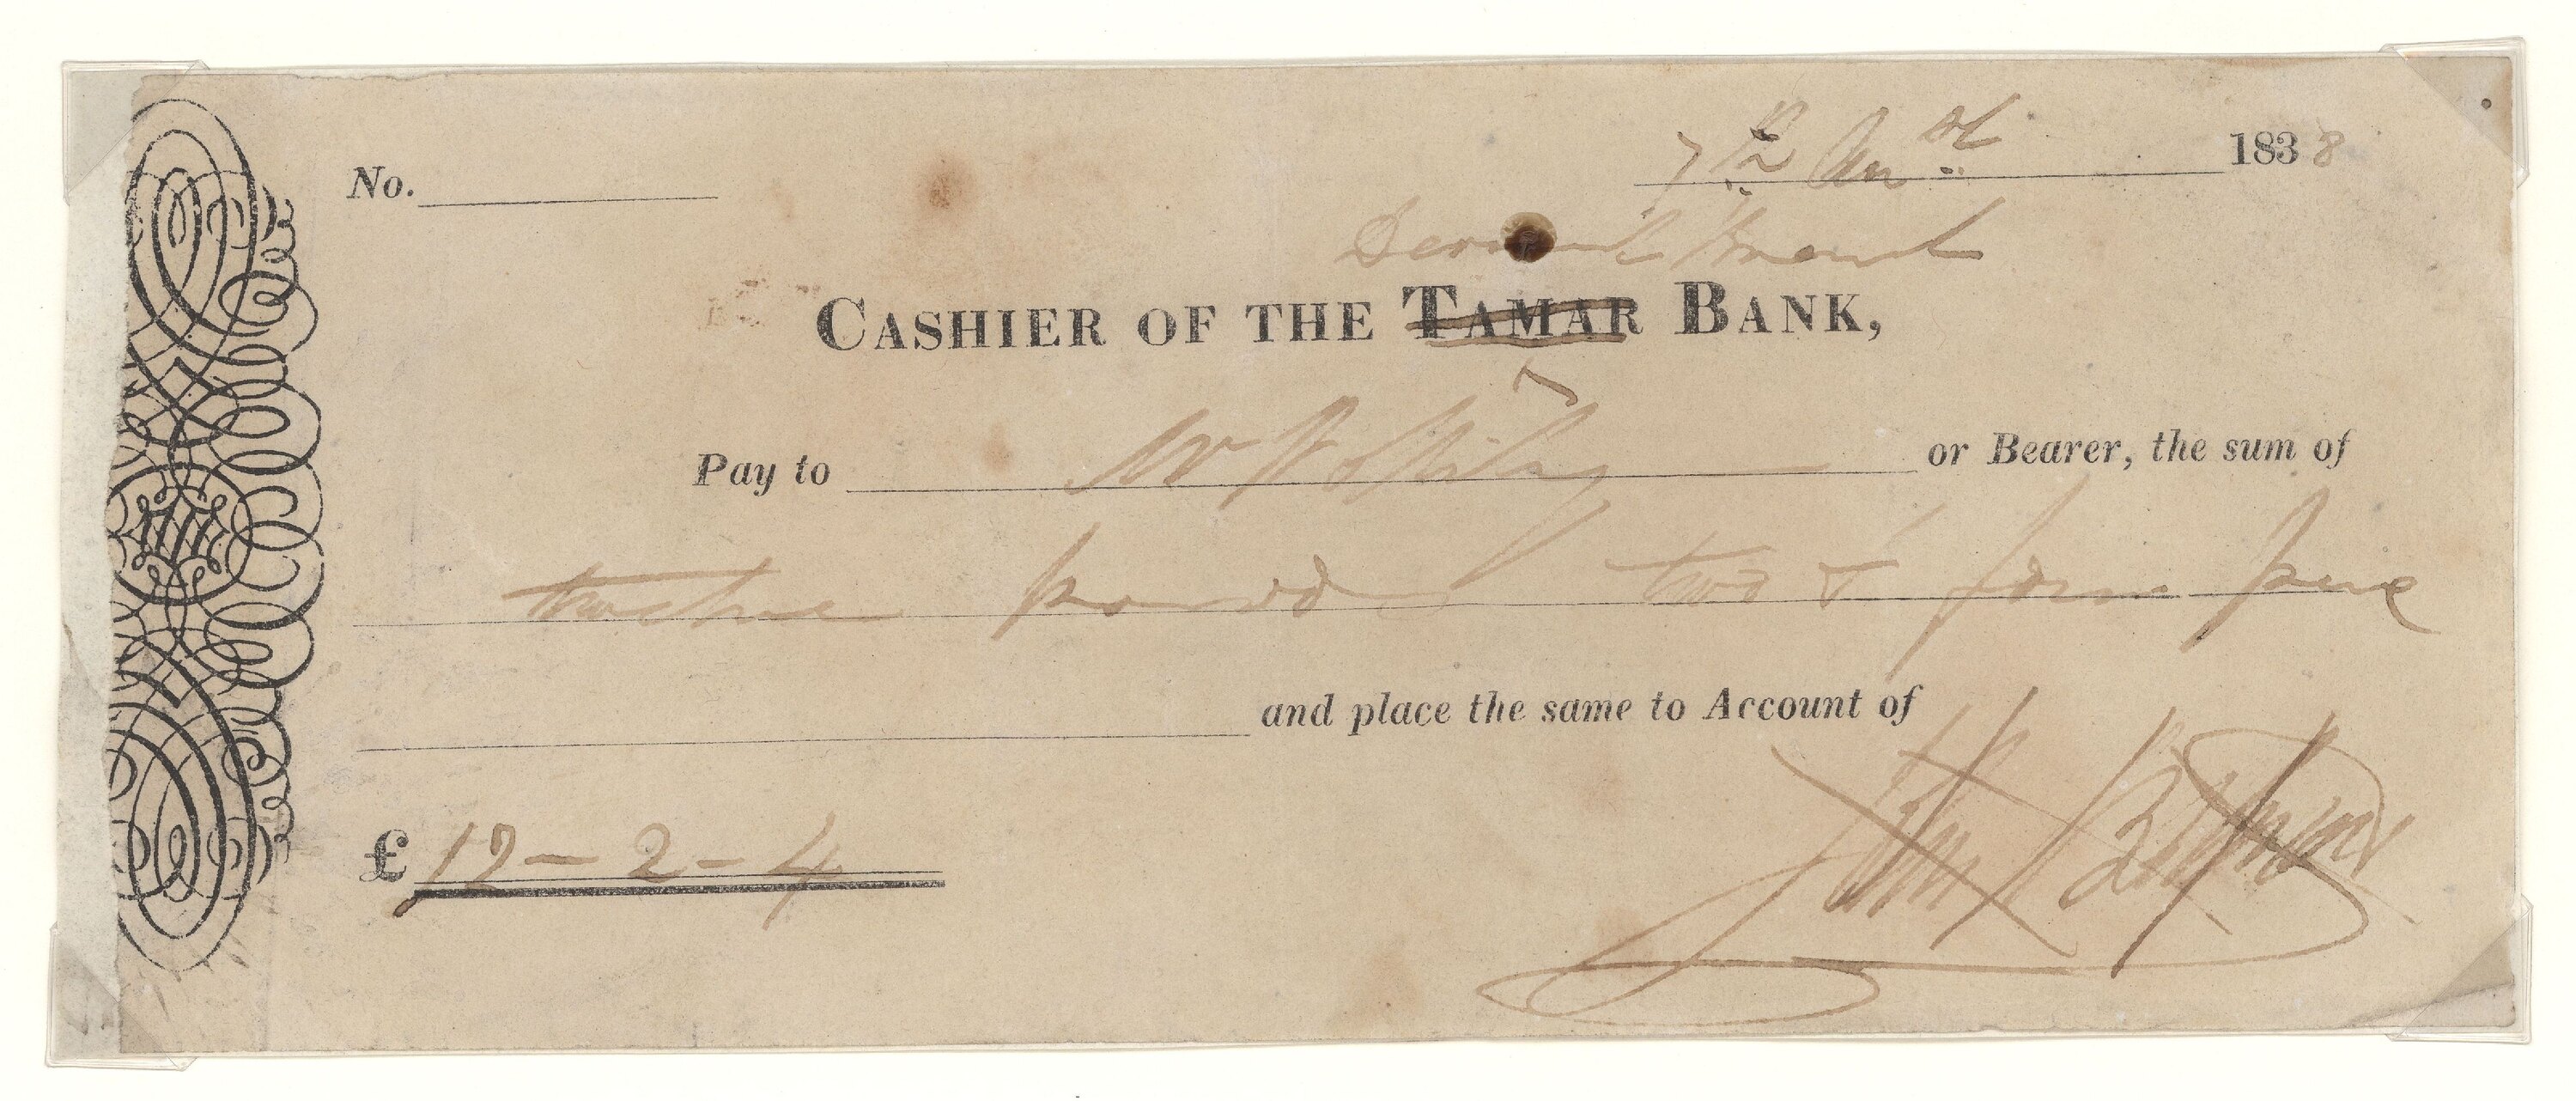 7th 1838
No.
Derwent
CASHIER OF THE TAMAR BANK,
Pay to Mr or Bearer, the sum of
twelve pounds two & four pence
and place the same to Account of
£ 12 - 2 - 4
John Batman